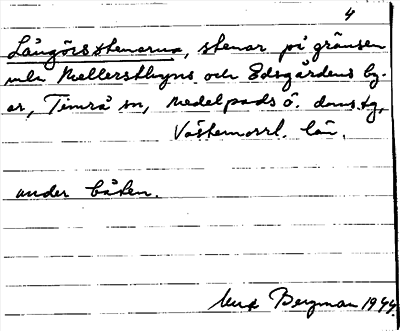 4
Långörsstenarna, stenar på gränsen
mln Mellersthyns och Edsgårdens by-
ar, Timrå sn, Medelpads ö. doms.tg,
Västernorrl. län.
under båken.
Bergman 1944.